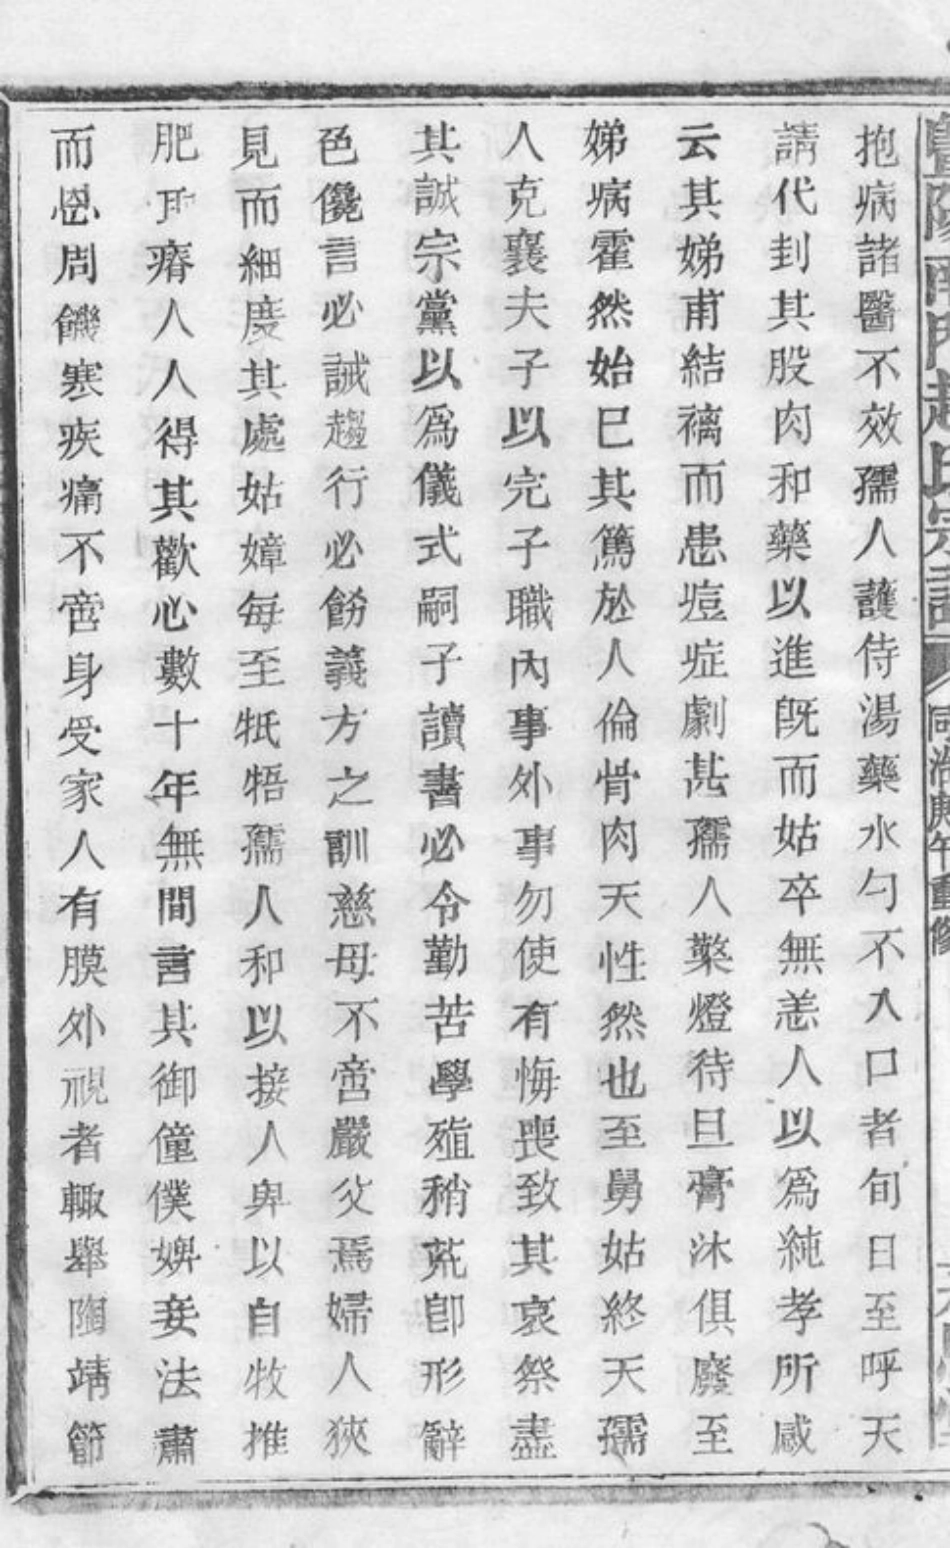 抱病諸醫不效孺人護侍湯藥水勺不入口者旬日至呼天
請代刲其股肉和藥以進旣而姑卒無恙人以爲純孝所感
云其娣甫結褵而患痘症劇甚孺人檠燈待旦膏沐俱廢至
娣病霍然始巳其篤於人倫骨肉天性然也至舅姑終天孺
人克襄夫子以完子職內事外事勿使有悔喪致其哀祭盡
其誠宗黨以爲儀式嗣子讀書必令勤苦學殖稍荒卽形辭
色儳言必誡趨行必飭義方之訓慈母不啻嚴父焉婦人狹
見而細度其處姑嫜每至牴牾孺人和以接人卑以自牧推
肥取瘠人人得其歡心數十年無間言其御僮僕婢妾法肅
而恩周饑寒疾痛不啻身受家人有膜外視者輙舉陶靖節
暨陽 趙氏宗譜 重修